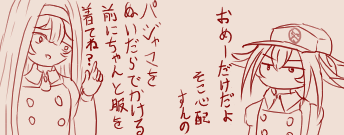 パジャマを
ぬいだらでかける
前にちゃんと服を
着てね?
おめーだけだよ
そこ心配
すんの